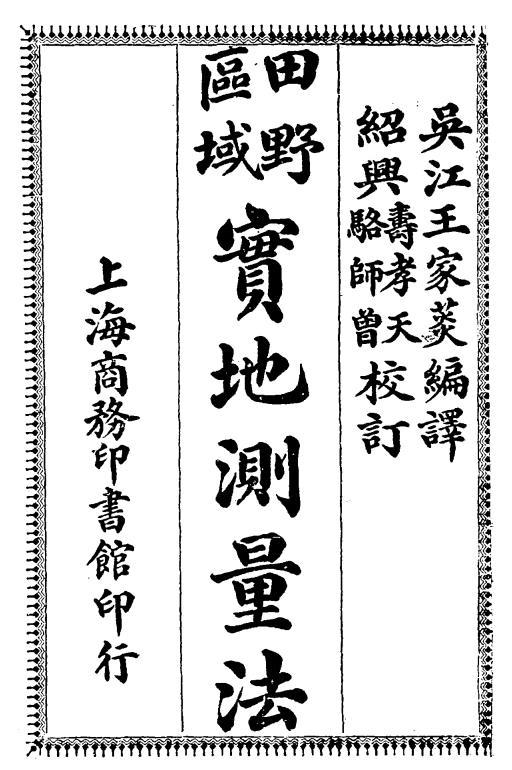 吳江王家菼編譯
紹興壽孝天駱師曾校訂
田野區域實地測量法
上海商務印書館印行